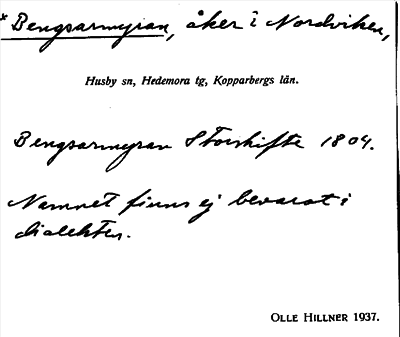 *Bengsarmyran, åker i Nordviken,
Husby sn, Hedemora tg, Kopparbergs län.
Bengsarmyran Storskifte 1804.
Namnet finns ej bevarat i
dialekten.
OLLE HILLNER 1937.